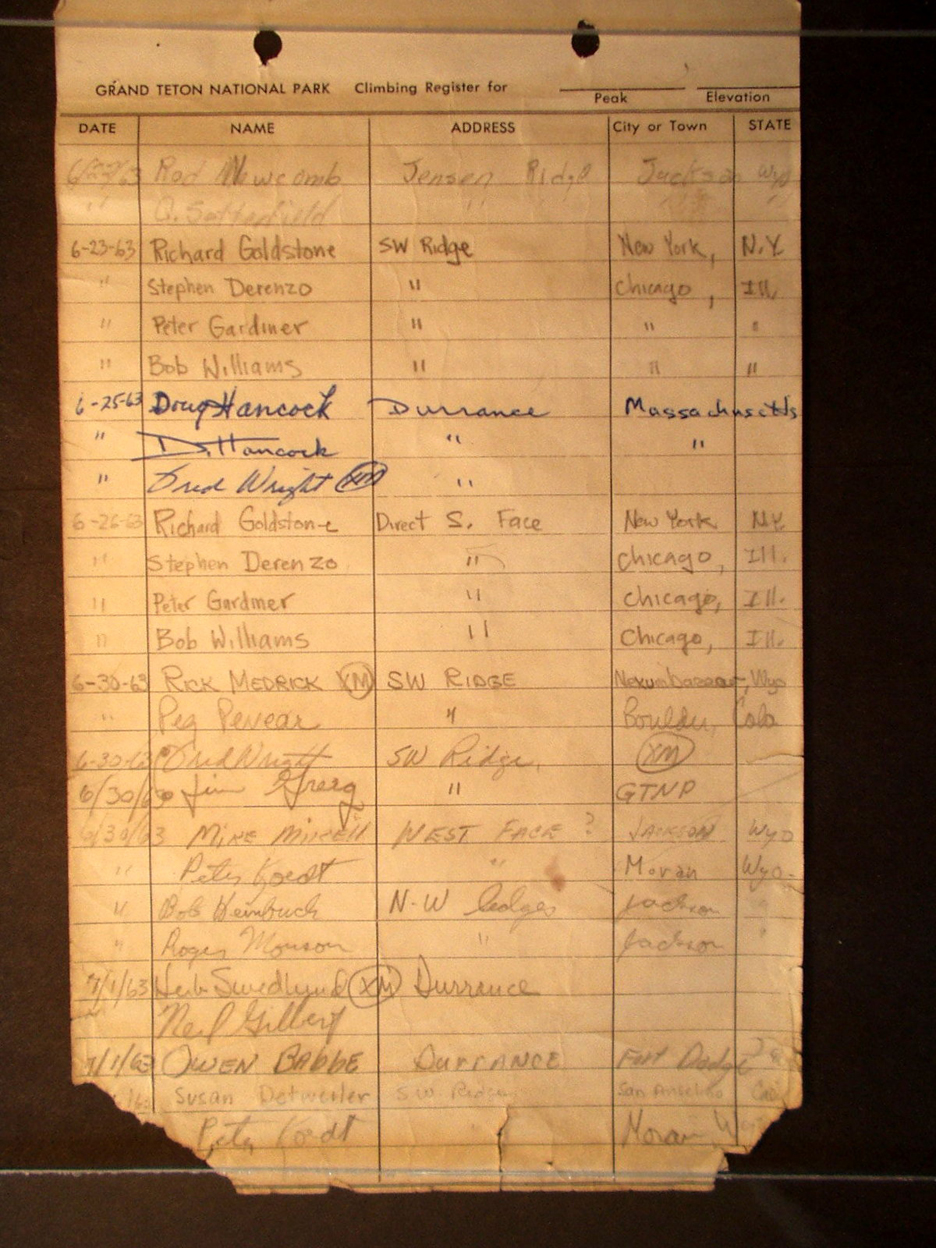 GRAND TETON NATIONAL PARK Climbing Register for
Peak Elevation
DATE NAME ADDRESS City or Town STATE
Rod Newcomb Jensen Ridge Jackson Wyo
" G. Satterfield " " "
6-23-63 Richard Goldstone SW Ridge New York, N.Y.
" Stephen Derenzo " Chicago, Ill.
" Peter Gardiner " " "
" Bob Williams " " "
6-25-63 Doug Hancock Durrance Massachusetts
" D. Hancock " "
" Fred Wright XM "
6-25-63 Richard Goldstone Direct S. Face New York NY
" Stephen Derenzo " Chicago, Ill.
" Peter Gardiner " Chicago, Ill.
" Bob Williams " Chicago, Ill.
6-30-63 RICK MEDRICK XM SW RIDGE Wyo
" Peg Pevear " Boulder, Colo
6-30-63 Fred Wright SW Ridge, XM
6/30/63 Jim Greig " GTNP
6/30/63 MIKE WEST FACE ? JACKSON Wyo
" Pete Koedt " Moran Wyo.
" Bob N-W Ledges Jackson "
" Roger Monson " Jackson "
7/1/63 Herb Swedlund XM Durrance
Neil Gilbert
7/1/63 OWEN BABBE DURRANCE Fort Dodge
Susan Detweiler S.W. Ridge San Anselmo Cal
Pete Koedt Moran